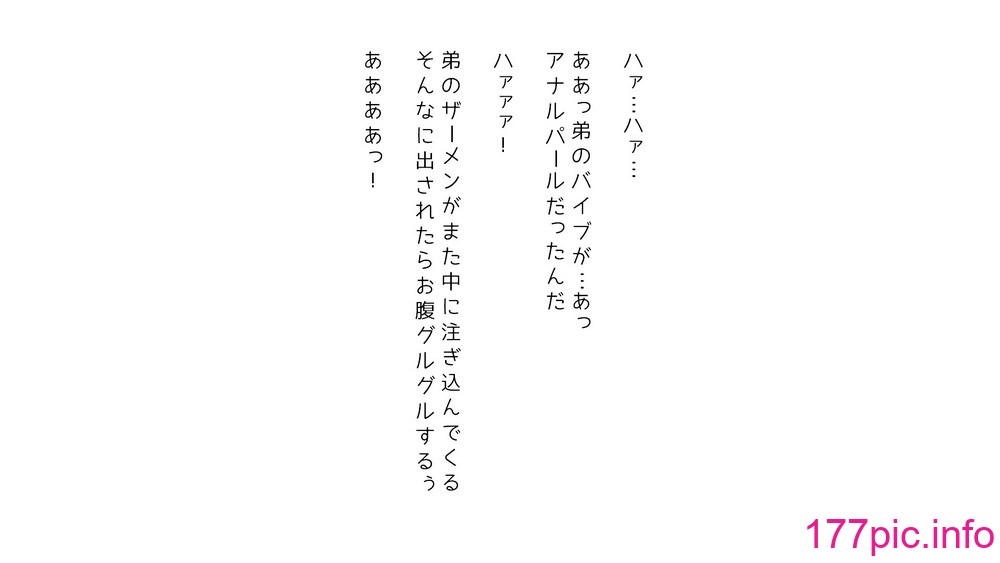 ハァ…ハァ…
ああっ弟のバイブが…あっ
アナルパールだったんだ
ハァァァ！
弟のザーメンがまた中に注ぎ込んでくる
そんなに出されたらお腹グルグルするぅ
ああああっ！
177pic.info